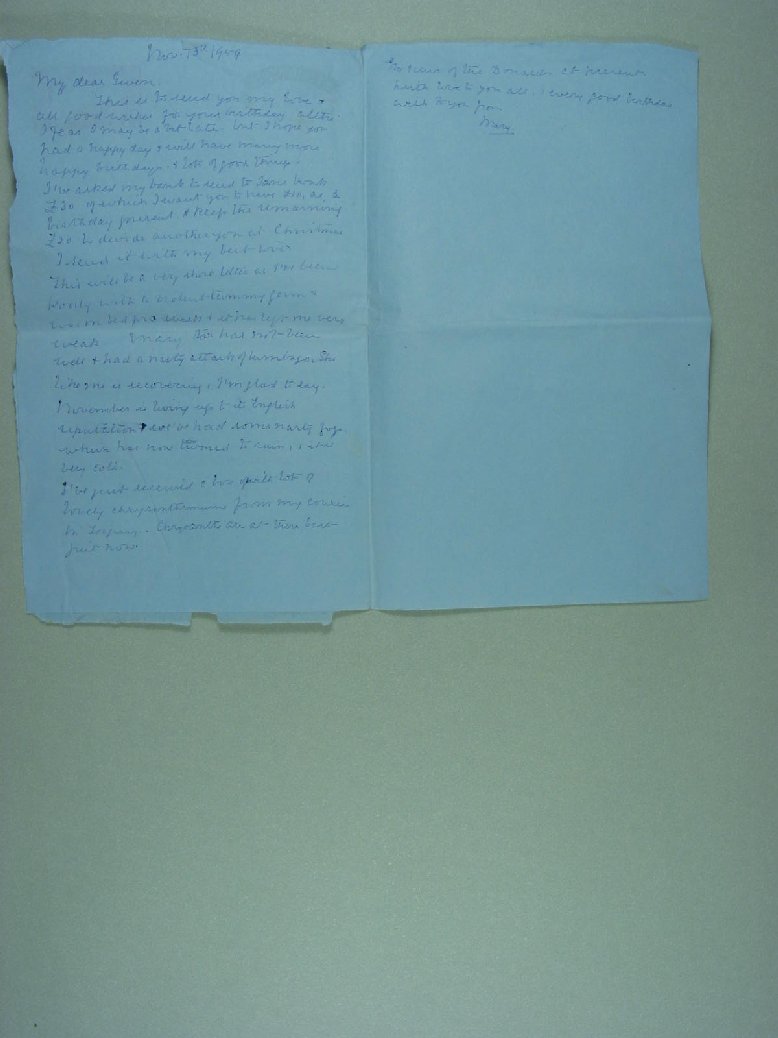 Nov. 13th 1949
My dear Gwen.
This is to send you my love &
all good wishes for your birthday altho'
I fear I may be a bit late. but I hope you
had a happy day & will have many more
happy birthdays. & lots of good things.
I've asked my bank to send to bank
£30 of which I want you to have £10, as a
birthday present & keep the remaining
£20 to divide you at Christmas
I send it with my best love
This will be a very short letter as I've been
with a tummy germ &
was in bed & it has left me very
weak. Mary has not been
well & had a nasty attack of lumbago. She
like me is recovering, I'm glad to say.
November is living up to its English
reputation we've had some nasty fogs.
which has now turned to rain, & is
very cold.
I've just received a box of
lovely chrysanthemums from my cousin
in . are at their best
just now
No news of the at present
with love to you all. & every good birthday
wish to you from
Mary.